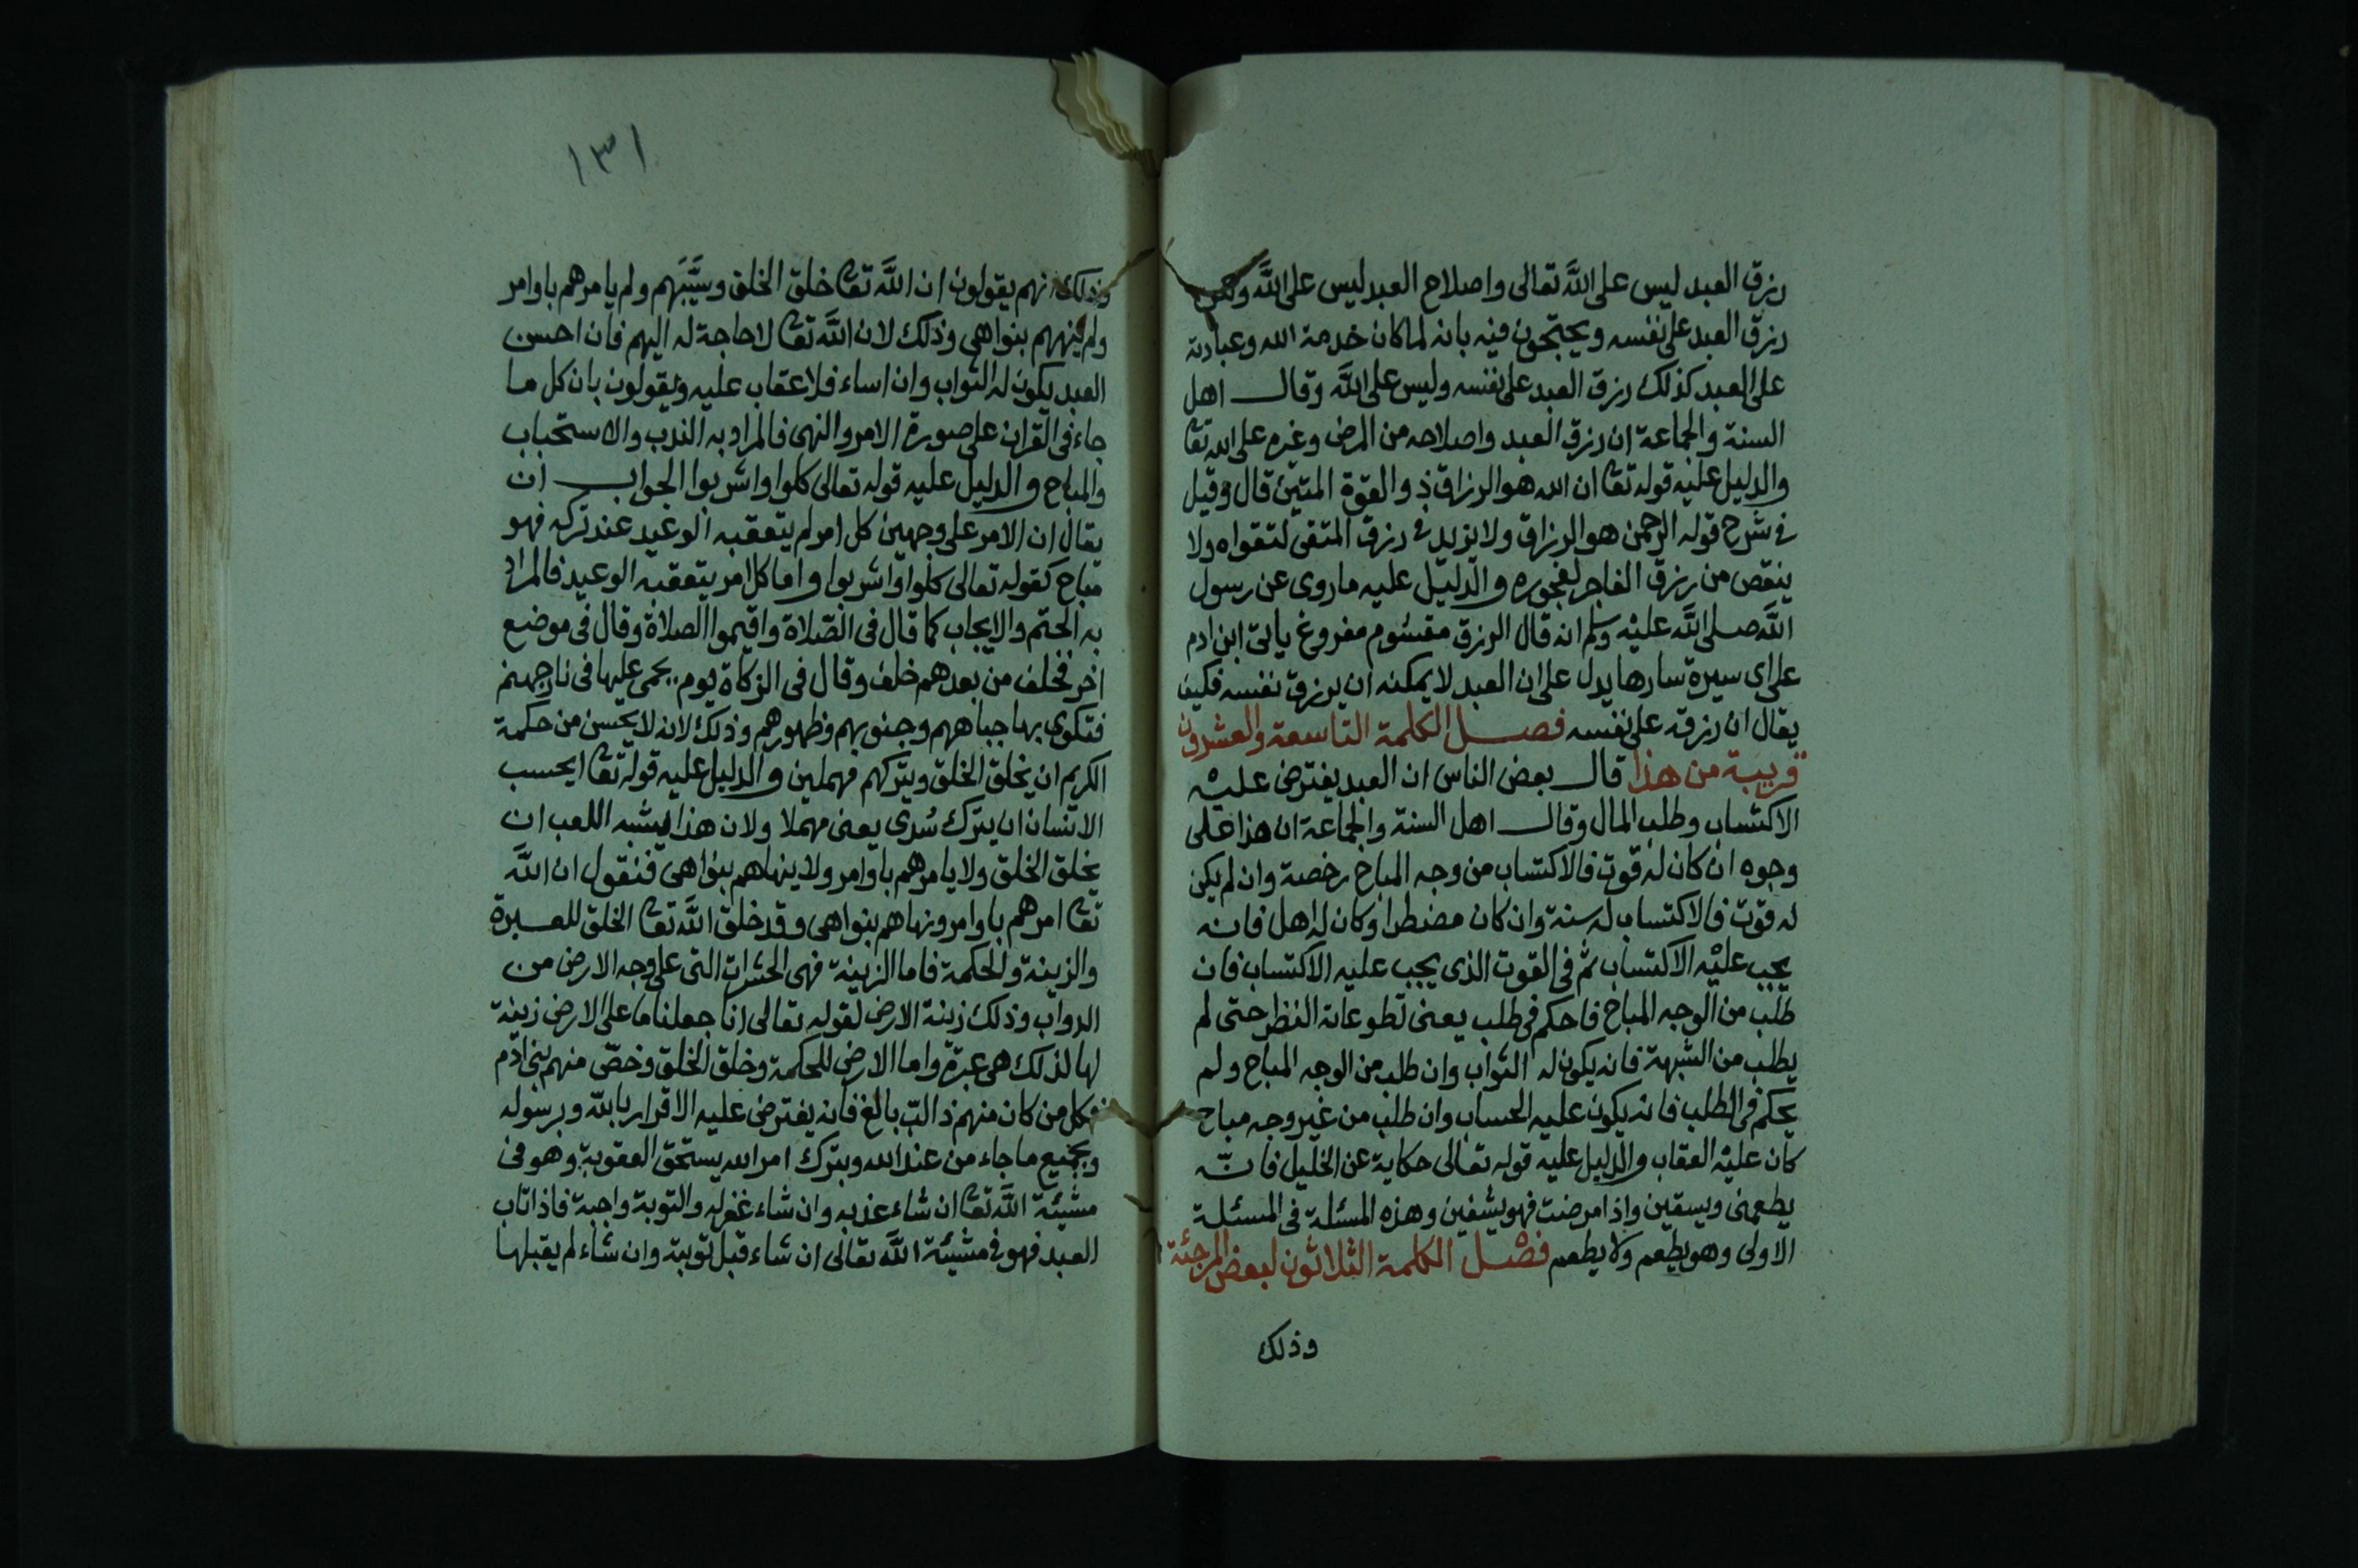 رزق العبد ليس على الله تعالى واصلاح العبد ليس على الله
رزق العبد على نفسه ويحتجون فيه بانه لما كان خدمة الله وعبادته
على العبد كذلك رزق العبد على نفسه وليس على الله وقال اهل
السنة والجماعة ان رزق العبد واصلاحه من المرض وغيره على الله تعا
والدليل عليه قوله تعا ان الله هو الرزاق ذو القوة المتين قال وقيل
في شرح قوله الرحمن هو الرزاق ولا يزيد في رزق المتقى لتقواه ولا
ينقص من رزق الفاجر لفجوره والدليل عليه ما روى عن رسول
الله صلى الله عليه وسلم انه قال الرزق مقسوم مفروغ ياتى ابن ادم
على اى سيرة سارها يدل على ان العبد لا يمكنه ان يرزق نفسه فكيف
يقال ان رزقه على نفسه فصل الكلمة التاسعة والعشرون
قريبة من هذا قال بعض الناس ان العبد يفترض عليه
الاكتساب وطلب المال وقال اهل السنة والجماعة ان هذا على
وجوه ان كان له قوت فالاكتساب من وجه المباح رخصة وان لم يكن
له قوت فالاكتساب له سنة وان كان مضطرا وكان له اهل فانه
يجب عليه الاكتساب ثم فى القوت الذى يجب عليه الاكتساب فان
طلب من الوجه المباح فاحكم فى طلب يعنى النظر حتى لم
يطلب من الشبهة فانه يكون له الثواب وان طلب من الوجه المباح ولم
يحكم فى الطلب فانه يكون عليه الحساب وان طلب من غير وجه مباح
كان عليه العقاب والدليل عليه قوله تعالى حكاية عن الخليل فانه
يطعمنى ويسقين واذا مرضت فهو يشفين وهذه المسئلة فى المسئلة
الاولى وهو يطعم ولا يطعم فصل الكلمة الثلاثون لبعض المرجئة
وذلك
١٣١
وذلك انهم يقولون ان الله تعا خلق الخلق وسيبهم ولم يامرهم باوامر
ولم ينههم بنواهى وذلك لان الله تعا لا حاجة له اليهم فان احسن
العبد يكون له الثواب وان اساء فلا عقاب عليه ويقولون بان كل ما
جاء فى القران على صورة الامر والنهى فالمراد به الندب والاستحباب
والمباح والدليل عليه قوله تعالى كلوا واشربوا الجواب ان
يقال ان الامر على وجهين كل امر لم يتعقبه الوعيد عند تركه فهو
مباح كقوله تعالى كلوا واشربوا واما كل امر يتعقبه الوعيد فالمراد
به الحتم والايجاب كما قال فى الصلاة واقيموا الصلاة وقال فى موضع
اخر فخلف من بعدهم خلف وقال فى الزكاة يوم يحمى عليها فى نار جهنم
فتكوى بها جباههم وجنوبهم وظهورهم وذلك لانه لا يحسن من حكمة
الكريم ان يخلق الخلق ويتركهم مهملين والدليل عليه قوله تعا ايحسب
الانسان ان يترك سدى يعنى مهملا ولان هذا يشبه اللعب ان
يخلق الخلق ولا يامرهم باوامر ولا ينهاهم بنواهى فنقول ان الله
تعا امرهم باوامر ونهاهم بنواهى وقد خلق الله تعا الخلق للعبرة
والزينة والحكمة فاما الزينة فهى الحشرات التى على وجه الارض من
الدواب وذلك زينة الارض لقوله تعالى انا جعلنا ما على الارض زينة
لها لذلك هى عبرة واما الارض للحكمة وخلق الخلق وخص منهم بنى ادم
فكل من كان منهم بالغ فانه يفترض عليه الاقرار بالله وبرسوله
وبجميع ما جاء من عند الله وبترك امر الله يستحق العقوبة وهو فى
مشيئة الله تعا ان شاء عذبه وان شاء غفر له والتوبة واجبة فاذا تاب
العبد فهو فى مشيئة الله تعالى ان شاء قبل توبته وان شاء لم يقبلها